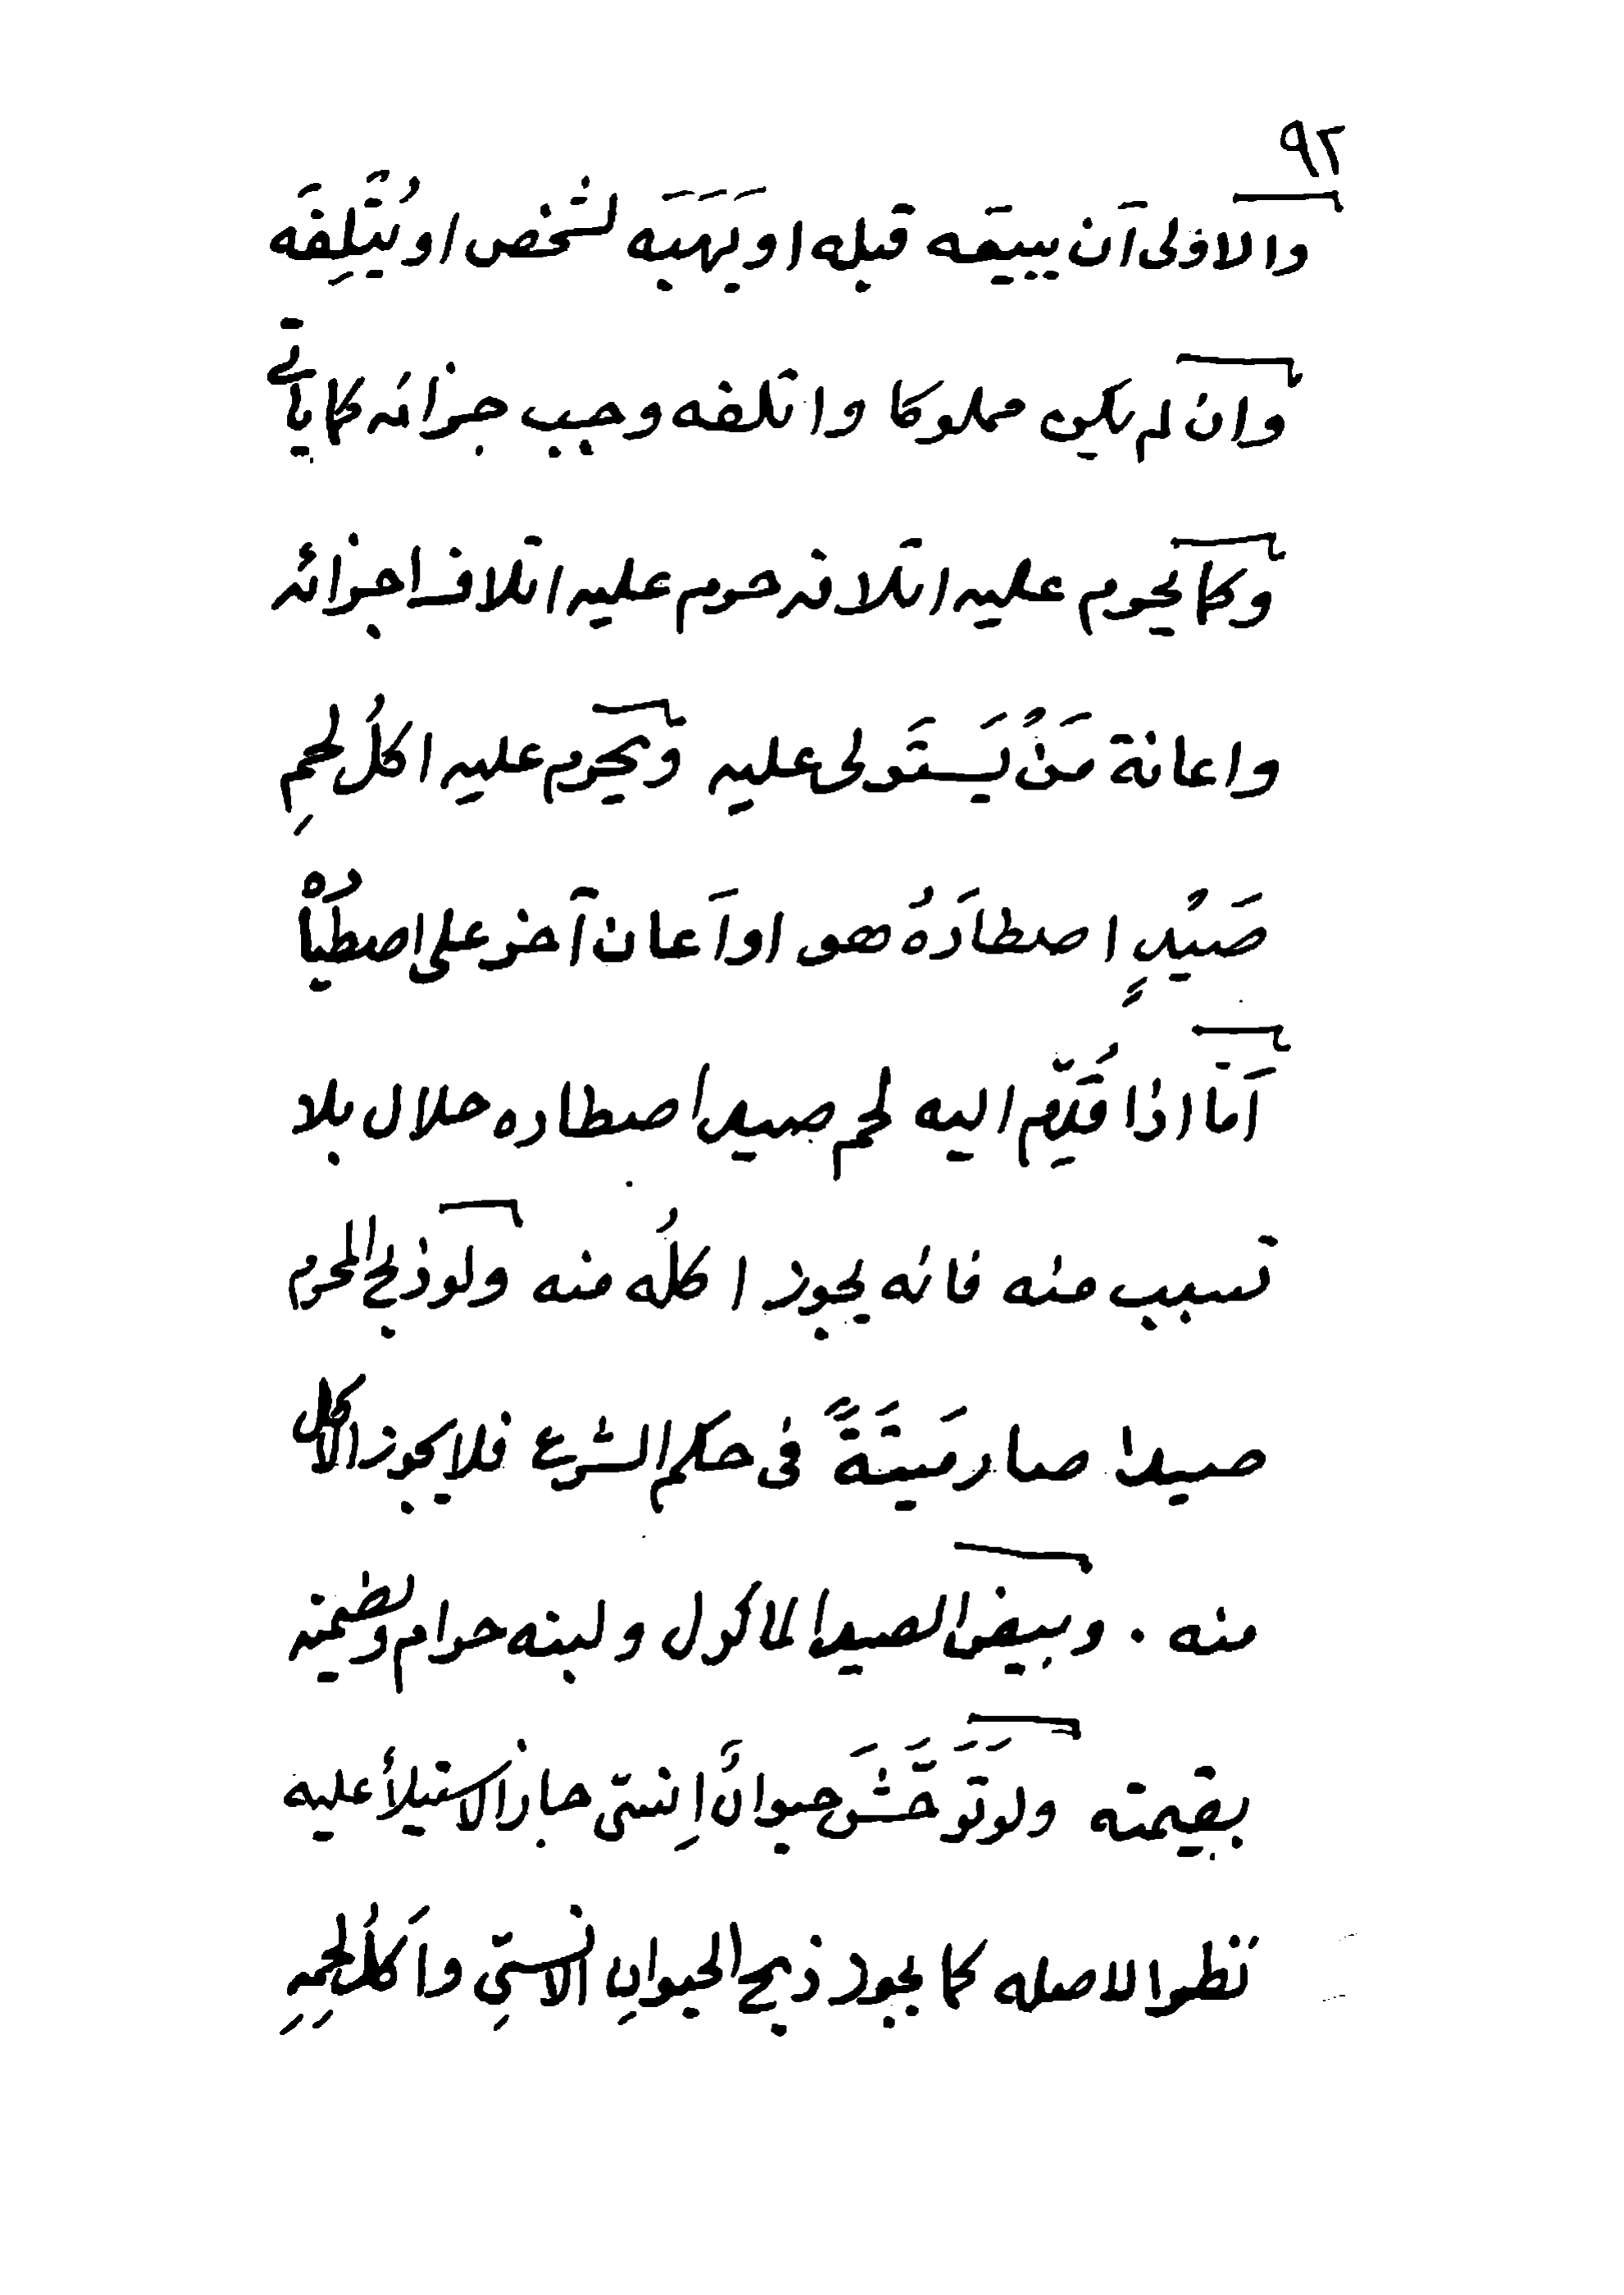 ٩٢
والاولى اَن يبيعَه قبله او يَهَبَه لشخص او يُتْلِفَه
وان لم يكن مملوكا واتلفه وجب جزائه كما ياتى
وكما يحرم عليه اتلافه حرم عليه اتلاف اجزائه
واعانة مَنْ يَستَولى عليه وَيحرم عليه اكلُ لحمِ
صَيْدٍ اصطادَهُ هو او اَعان آخر على اصطيادُه
اَمّا اذا قُدِّم اليه لحم صيد اصطاده حلال بلا
تسبب منه فانه يجوز اكلُه منه ولو ذبح المحرم
صيدا صار مَيتَةً فى حكم الشرع فلا يجوز الاكل
منه . وبيض الصيد الماكول ولبنه حرام ويضمنه
بقيمته ولو تَوَحَّشَ حيوانٌ اِنسىّ جاز الاستيلأ عليه
نظرا لاصله كما يجوز ذبح الحيوانِ الانسىِّ واَكلُ لحمِهِ